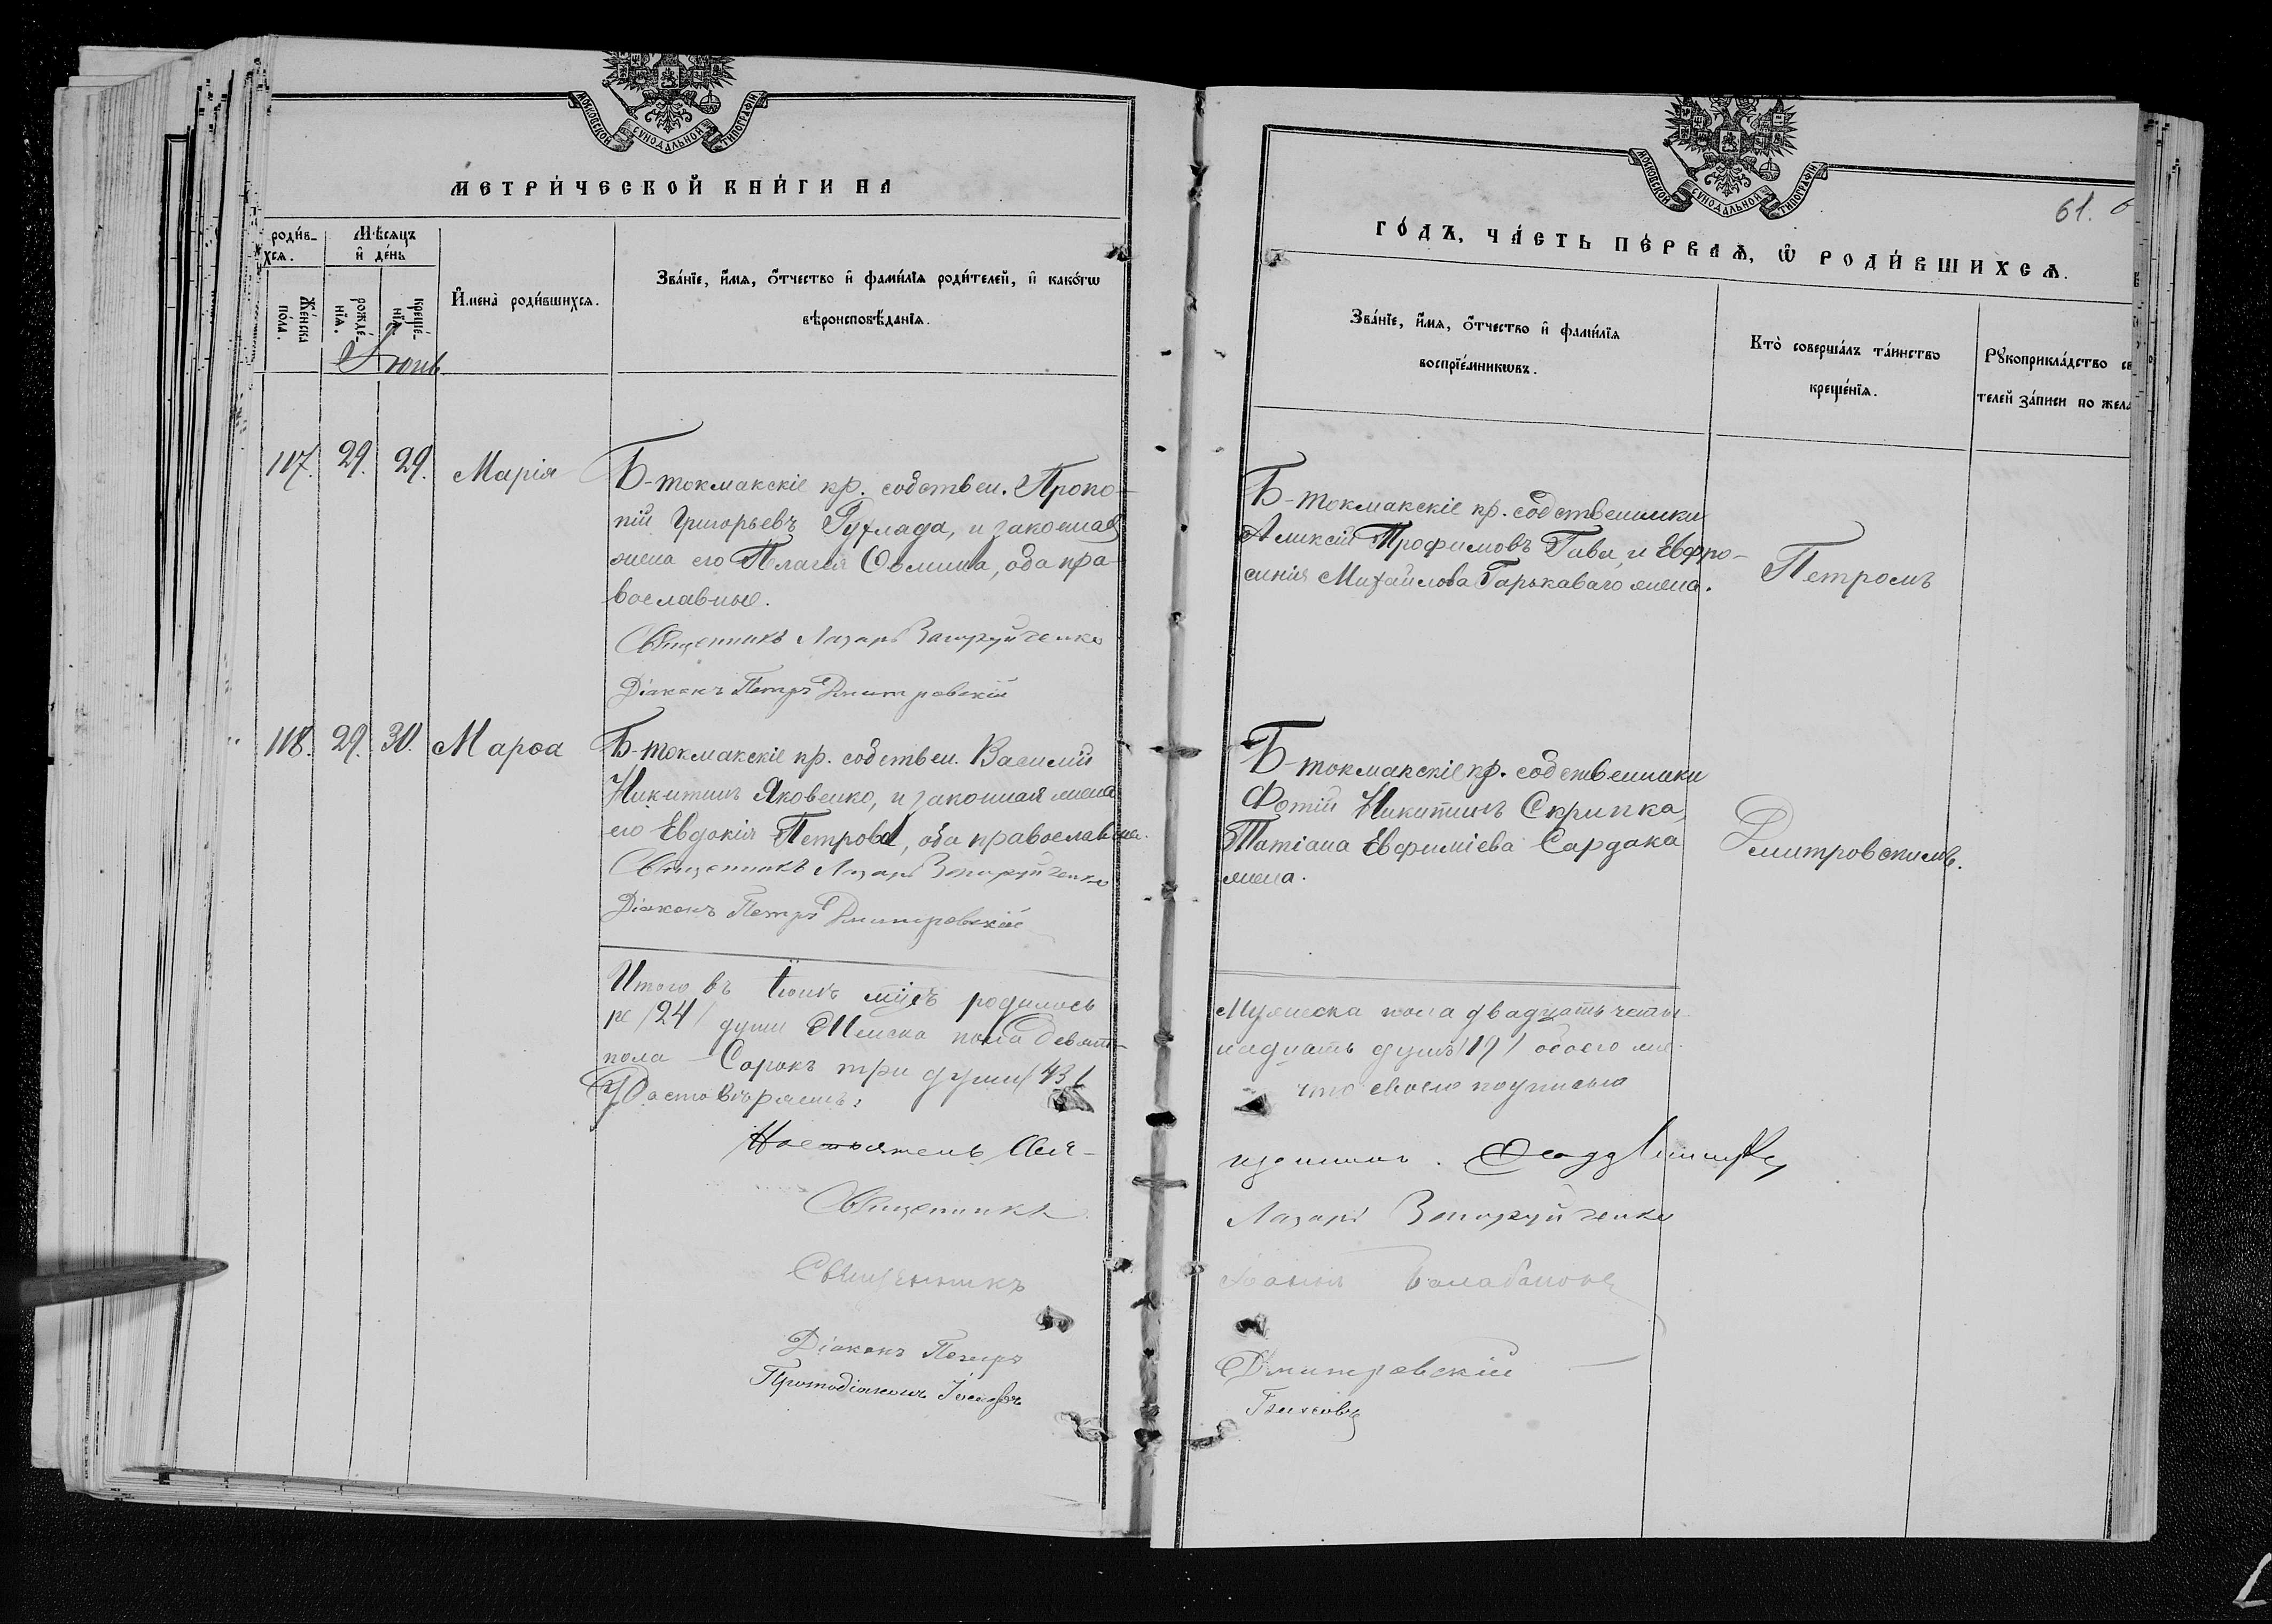 МОСКОВСКОЙ СУНОДАЛЬНОЙ ТИПОГРАФІИ
МЕТРИ́ЧЕСКОЙ КНИ́ГИ НА
роди́в-
хся.
Мѣсяцъ
и҆ де́нь
Же́нска
по́ла.
рожде́-
нїѧ.
креще́-
нїѧ.
И҆мена̀ роди́вшихсѧ.
Зва́нїе, и҆́мѧ, ѻ҆́тчество и҆ фами́лїѧ роди́телей, и҆ како́гѡ
вѣроисповѣ́данїѧ.
Іюнь
117. 29. 29. Марія
Б-токмакскіе кр. собствен. Проко-
пій Григорьевъ и законная
жена его оба пра-
вославные.
Священникъ Лазарь
Діаконъ Петръ Дмитровскій
118. 29. 30. Марѳа
Б-токмакскіе кр. собствен. Василій
Никитинъ Яковенко, и законная жена
его Евдокія Петрова, оба православные.
Священникъ Лазарь
Діаконъ Петръ Дмитровскій
Итого въ Іюнѣ мцѣ родилось
ре /24/ души Женска пола девят-
пола - Сорокъ три души /43/
Удостовѣряемъ:
Настоятель Свя-
Священникъ
Священникъ
Діаконъ Петръ
Протодіаконъ Іосифъ
МОСКОВСКОЙ СУНОДАЛЬНОЙ ТИПОГРАФІИ
61.
ГО́ДЪ, ЧА́СТЬ ПЕ́РВАѦ, Ѡ҆ РОДИ́ВШИХСѦ.
Зва́нїе, и҆́мѧ, ѻ҆́тчество и҆ фами́лїѧ
воспрїе́мникѡвъ.
Кто̀ соверша́лъ та́инство
креще́нїѧ.
Рꙋкоприкла́дство св
телей за́писи по жела
Б-токмакскіе кр. собственники
Алексій Трофимовъ Гава, и Евфро-
синія Михайлова Горькаваго жена.
Петромъ
Б-токмакскіе кр. собственники
Фотій Никитинъ Скрипка,
Татіана Евфиміева Сардака
жена.
Дмитровскимъ.
Мужеска пола двадцать четы-
надцать душъ /19/ обоего
что своею подписью
щенникъ.
Лазарь
Балабановъ
Дмитровскій